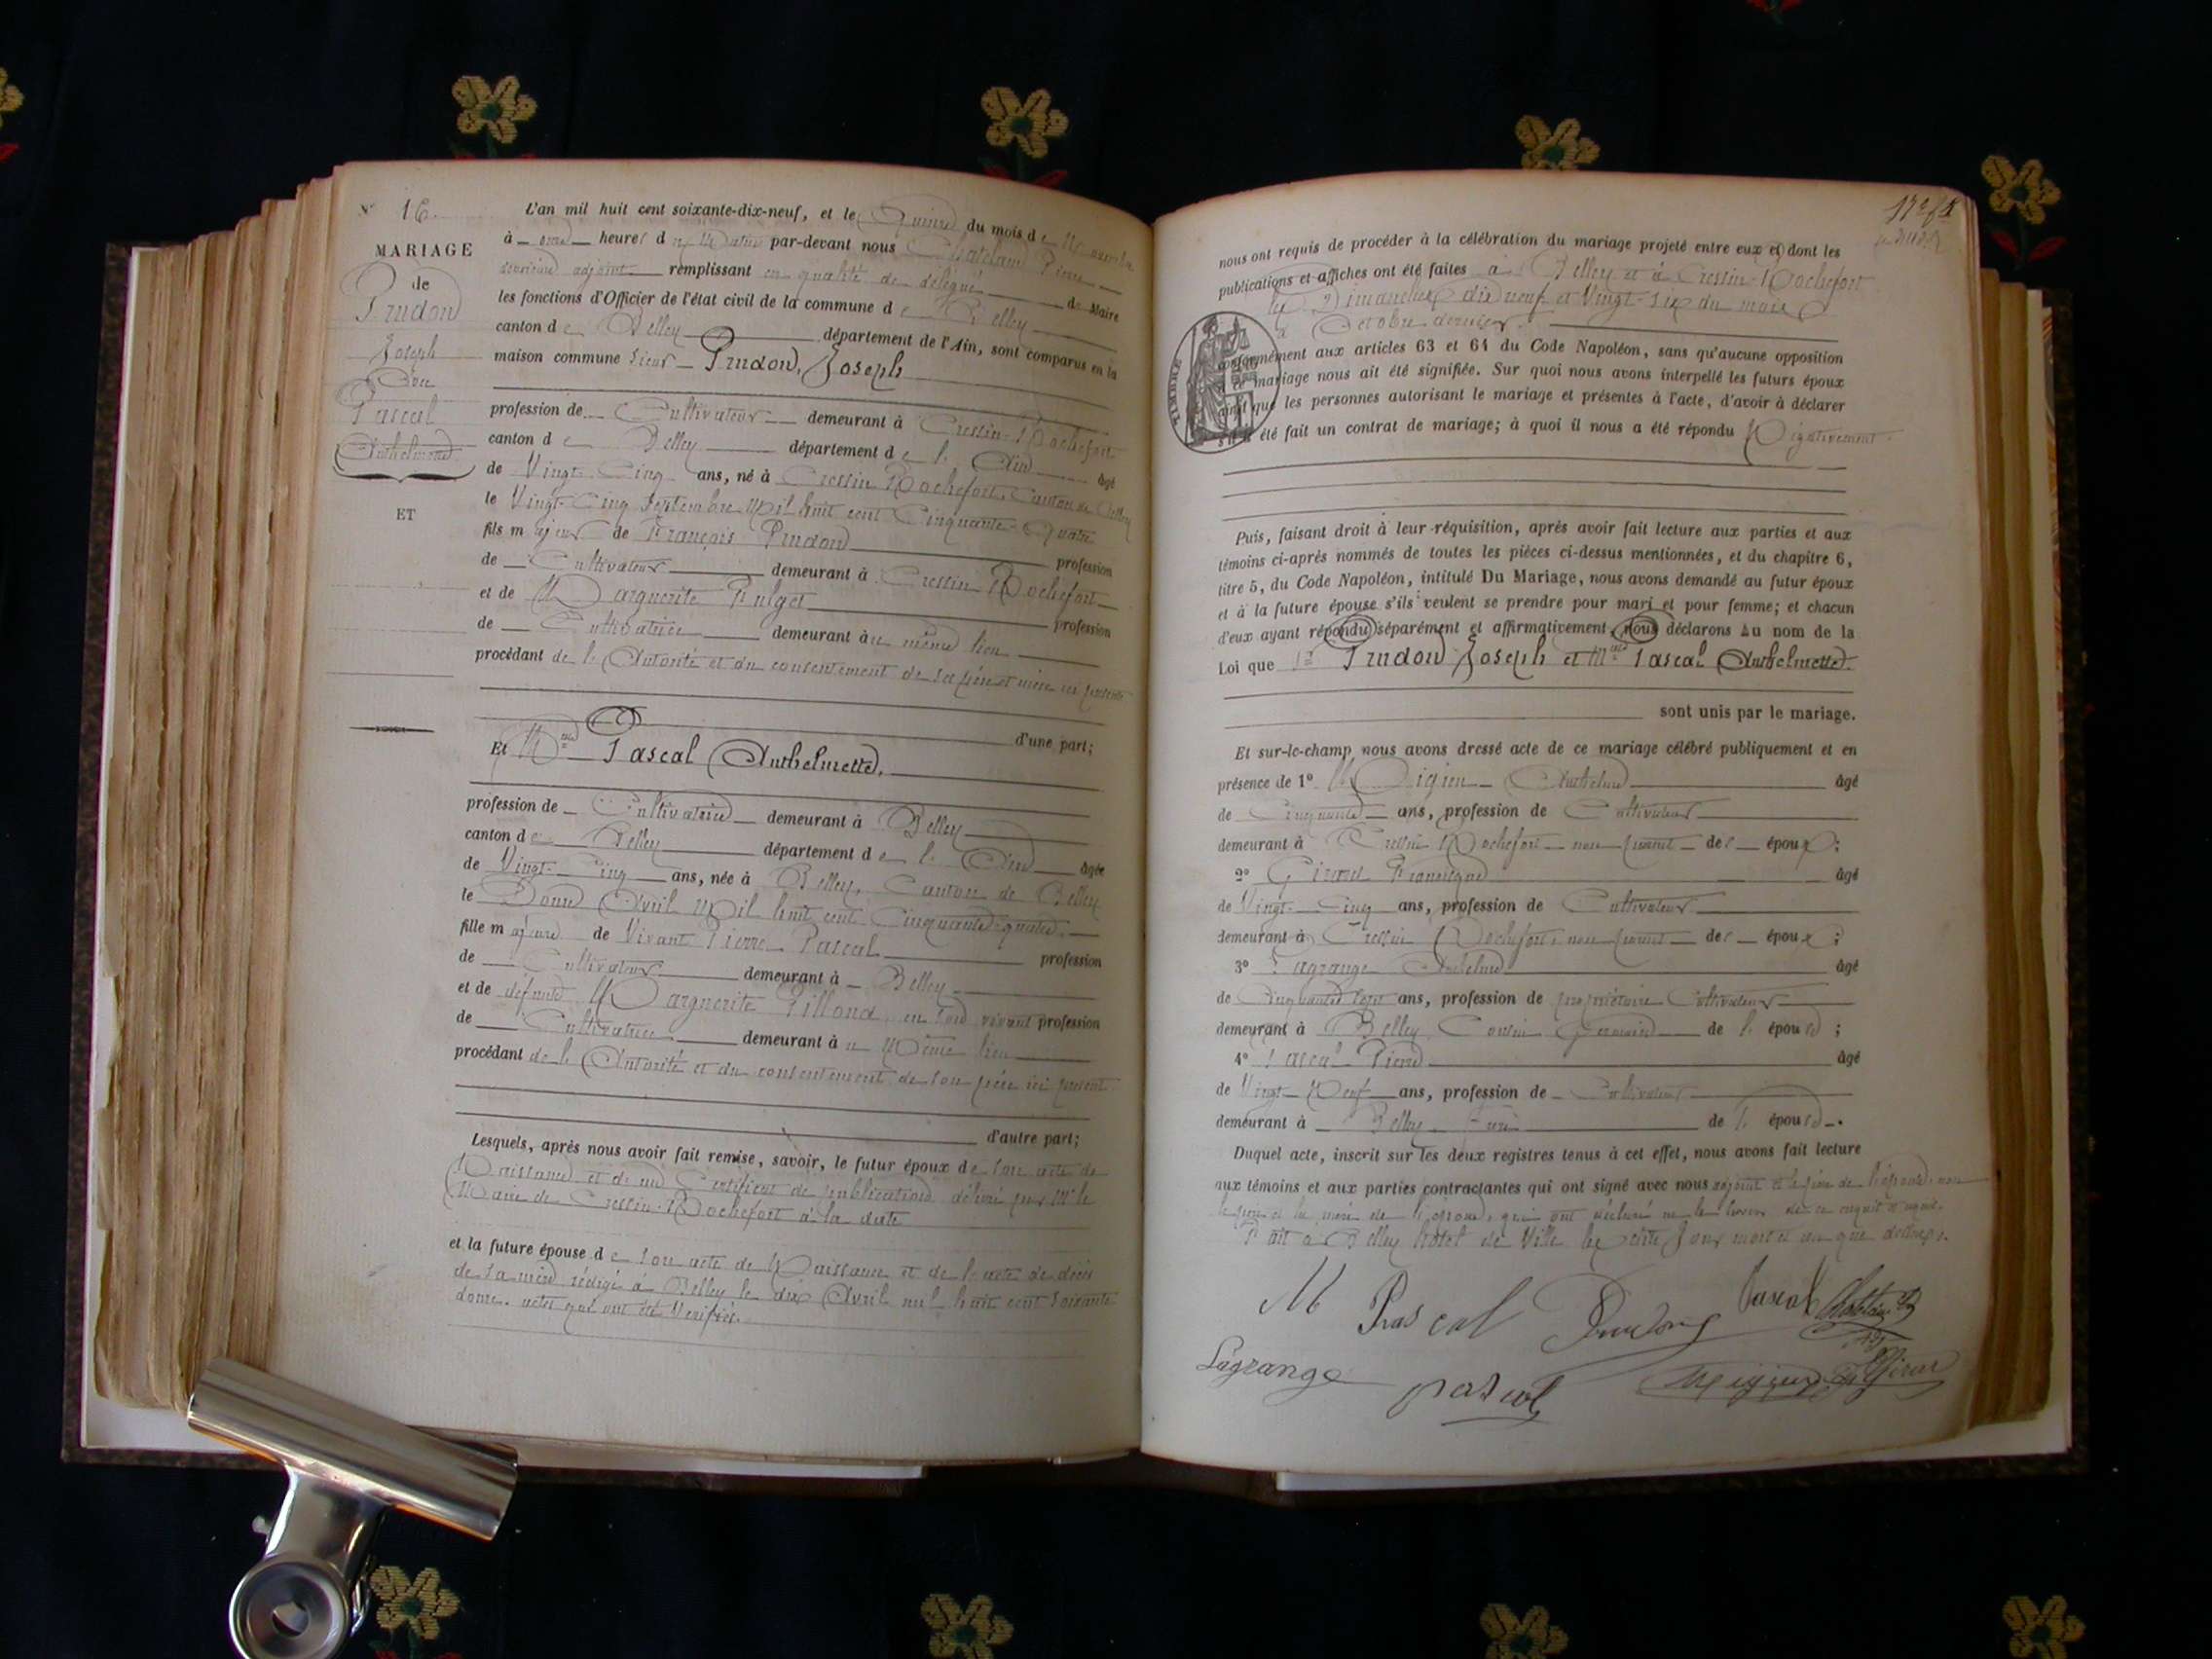 N° 16.
MARIAGE
de
Prudon
Joseph
Avec
Pascal
Anthelmette.
ET
L'an mil huit cent soixante-dix-neuf, et le Quinze du mois de Novembre
à onze heures du Matin par-devant nous Chatelain Pierre
adjoint remplissant en qualité de délégué de Maire
les fonctions d'Officier de l'état civil de la commune de Belley
canton de Belley département de l'Ain, sont comparus en la
maison commune sieur Prudon, Joseph
profession de Cultivateur demeurant à Cressin-Rochefort
canton de Belley département de l'Ain âgé
de Vingt-Cinq ans, né à Cressin Rochefort, Canton de Belley
le Vingt-Cinq Septembre Mil huit cent Cinquante-Quatre
fils majeur de François Prudon profession
de Cultivateur demeurant à Cressin Rochefort
et de Marguerite profession
de Cultivatrice demeurant au même lieu
procédant de l'Autorité et du consentement de ses père et mère ici présents
d'une part;
Et Melle Pascal Anthelmette,
profession de Cultivatrice demeurant à Belley
canton de Belley département de l'Ain âgée
de Vingt-Cinq ans, née à Belley, Canton de Belley
le Douze Avril Mil huit cent Cinquante-quatre.
fille majeure de Vivant Pierre Pascal profession
de Cultivateur demeurant à Belley
et de défunte Marguerite Billond, en son vivant profession
de Cultivatrice demeurant au Même lieu
procédant de l'Autorité et du consentement de son père ici présent.
d'autre part;
Lesquels, après nous avoir fait remise, savoir, le futur époux de son acte de
Naissance et d'un Certificat de publication délivré par Mr le
Maire de Cressin-Rochefort à la date
et la future épouse de son acte de Naissance et de l'acte de décès
de sa mère rédigé à Belley le dix Avril mil huit cent soixante
douze. actes qui ont été Vérifiés.
nous ont requis de procéder à la célébration du mariage projeté entre eux et dont les
publications et affiches ont été faites à Belley et à Cressin-Rochefort
les Dimanches dix neuf et Vingt-Six du mois
d'Octobre dernier.
TIMBRE
conformément aux articles 63 et 64 du Code Napoléon, sans qu'aucune opposition
à ce mariage nous ait été signifiée. Sur quoi nous avons interpellé les futurs époux
ainsi que les personnes autorisant le mariage et présentes à l'acte, d'avoir à déclarer
s'il a été fait un contrat de mariage; à quoi il nous a été répondu Négativement.
Puis, faisant droit à leur réquisition, après avoir fait lecture aux parties et aux
témoins ci-après nommés de toutes les pièces ci-dessus mentionnées, et du chapitre 6,
titre 5, du Code Napoléon, intitulé Du Mariage, nous avons demandé au futur époux
et à la future épouse s'ils veulent se prendre pour mari et pour femme; et chacun
d'eux ayant répondu séparément et affirmativement, nous déclarons Au nom de la
Loi que Sr Prudon Joseph et Melle Pascal Anthelmette.
sont unis par le mariage.
Et sur-le-champ nous avons dressé acte de ce mariage célébré publiquement et en
présence de 1° Anthelme âgé
de Cinquante ans, profession de Cultivateur
demeurant à Cressin Rochefort non parent des époux;
2° Girard âgé
de Vingt-Cinq ans, profession de Cultivateur
demeurant à Cressin Rochefort, non parent des époux;
3° Lagrange Anthelme âgé
de Cinquante Sept ans, profession de propriétaire Cultivateur
demeurant à Belley Cousin Germain de l'épouse;
4° Pascal Pierre âgé
de Vingt-Neuf ans, profession de Cultivateur
demeurant à Belley frère de l'épouse.
Duquel acte, inscrit sur les deux registres tenus à cet effet, nous avons fait lecture
aux témoins et aux parties contractantes qui ont signé avec nous adjoint et le père de l'épouse, non
le père et la mère de l'époux, qui ont déclaré ne le savoir de ce requis
Fait à Belley hotel de Ville les dits Jour mois et an que dessus.
M Pascal Prudon Pascal Chatelain
adj
Lagrange pascal Girar